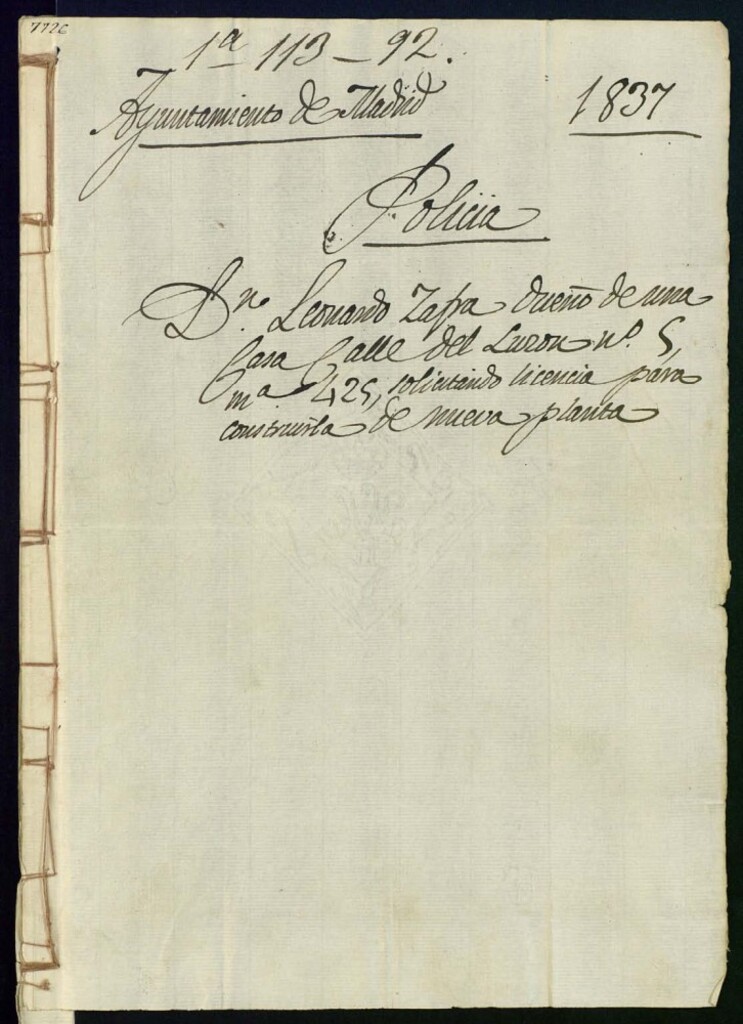 7726
1ª 113-92.
Ayuntamiento de Madrid 1837
Policia
Dn. Leonardo Zafra dueño de una
Casa Calle del Luzon nº. 5,
mª 425, solicitando licencia para
construirla de nueva planta